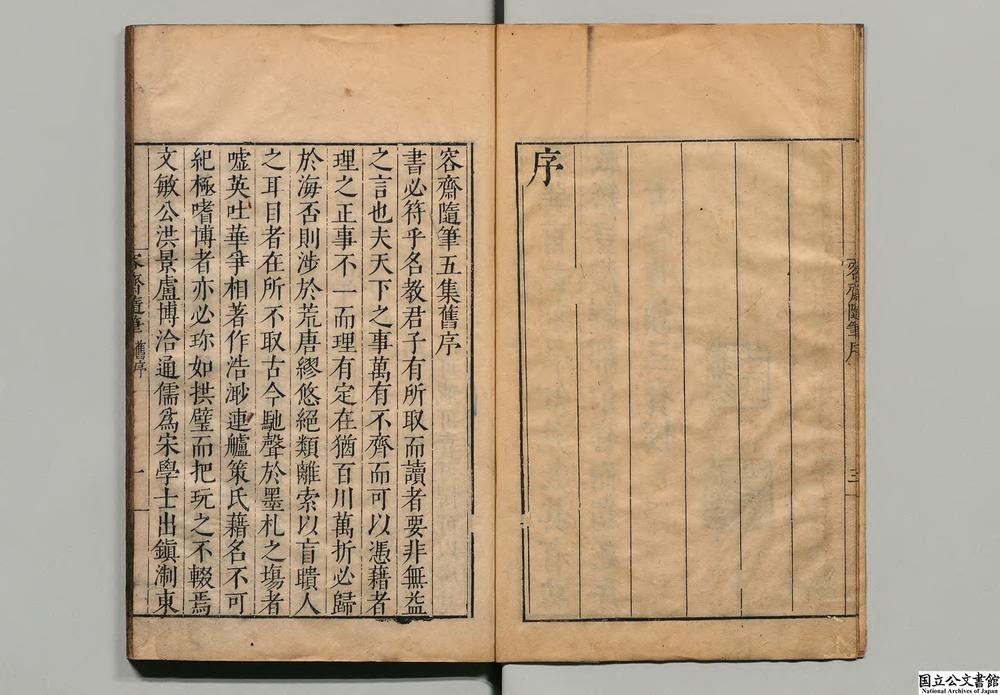 容齋隨筆序
三
序
容齋隨筆五集舊序
書必符乎名教君子有所取而讀者要非無益
之言也夫天下之事萬有不齊而可以憑藉者
理之正事不一而理有定在猶百川萬折必歸
於海否則涉於荒唐繆悠絕類離索以盲聵人
之耳目者在所不取古今馳聲於墨札之塲者
噓英吐華爭相著作浩渺連艫策氏藉名不可
紀極嗜博者亦必珍如拱璧而把玩之不輟焉
文敏公洪景盧博洽通儒爲宋學士出鎭淛東
容齋隨筆 舊序
一
国立公文書館
National Archives of Japan